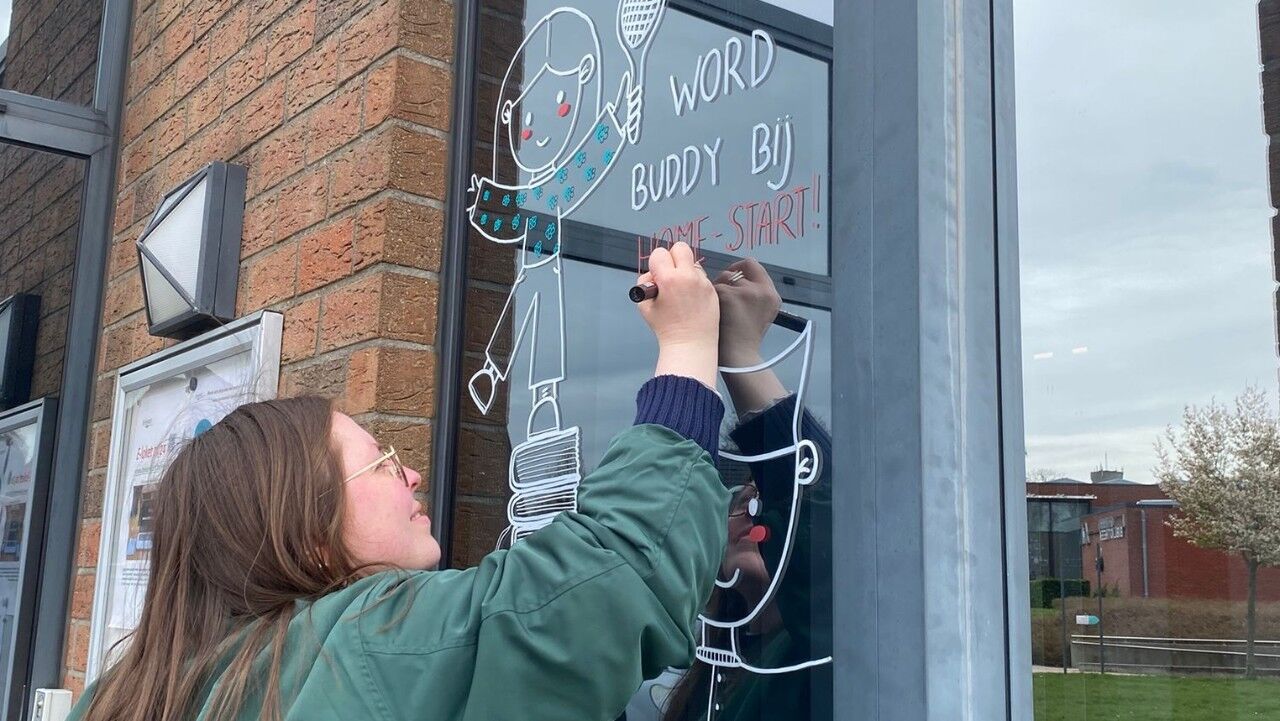 WORD
BUDDY BIJ
HOME-START!